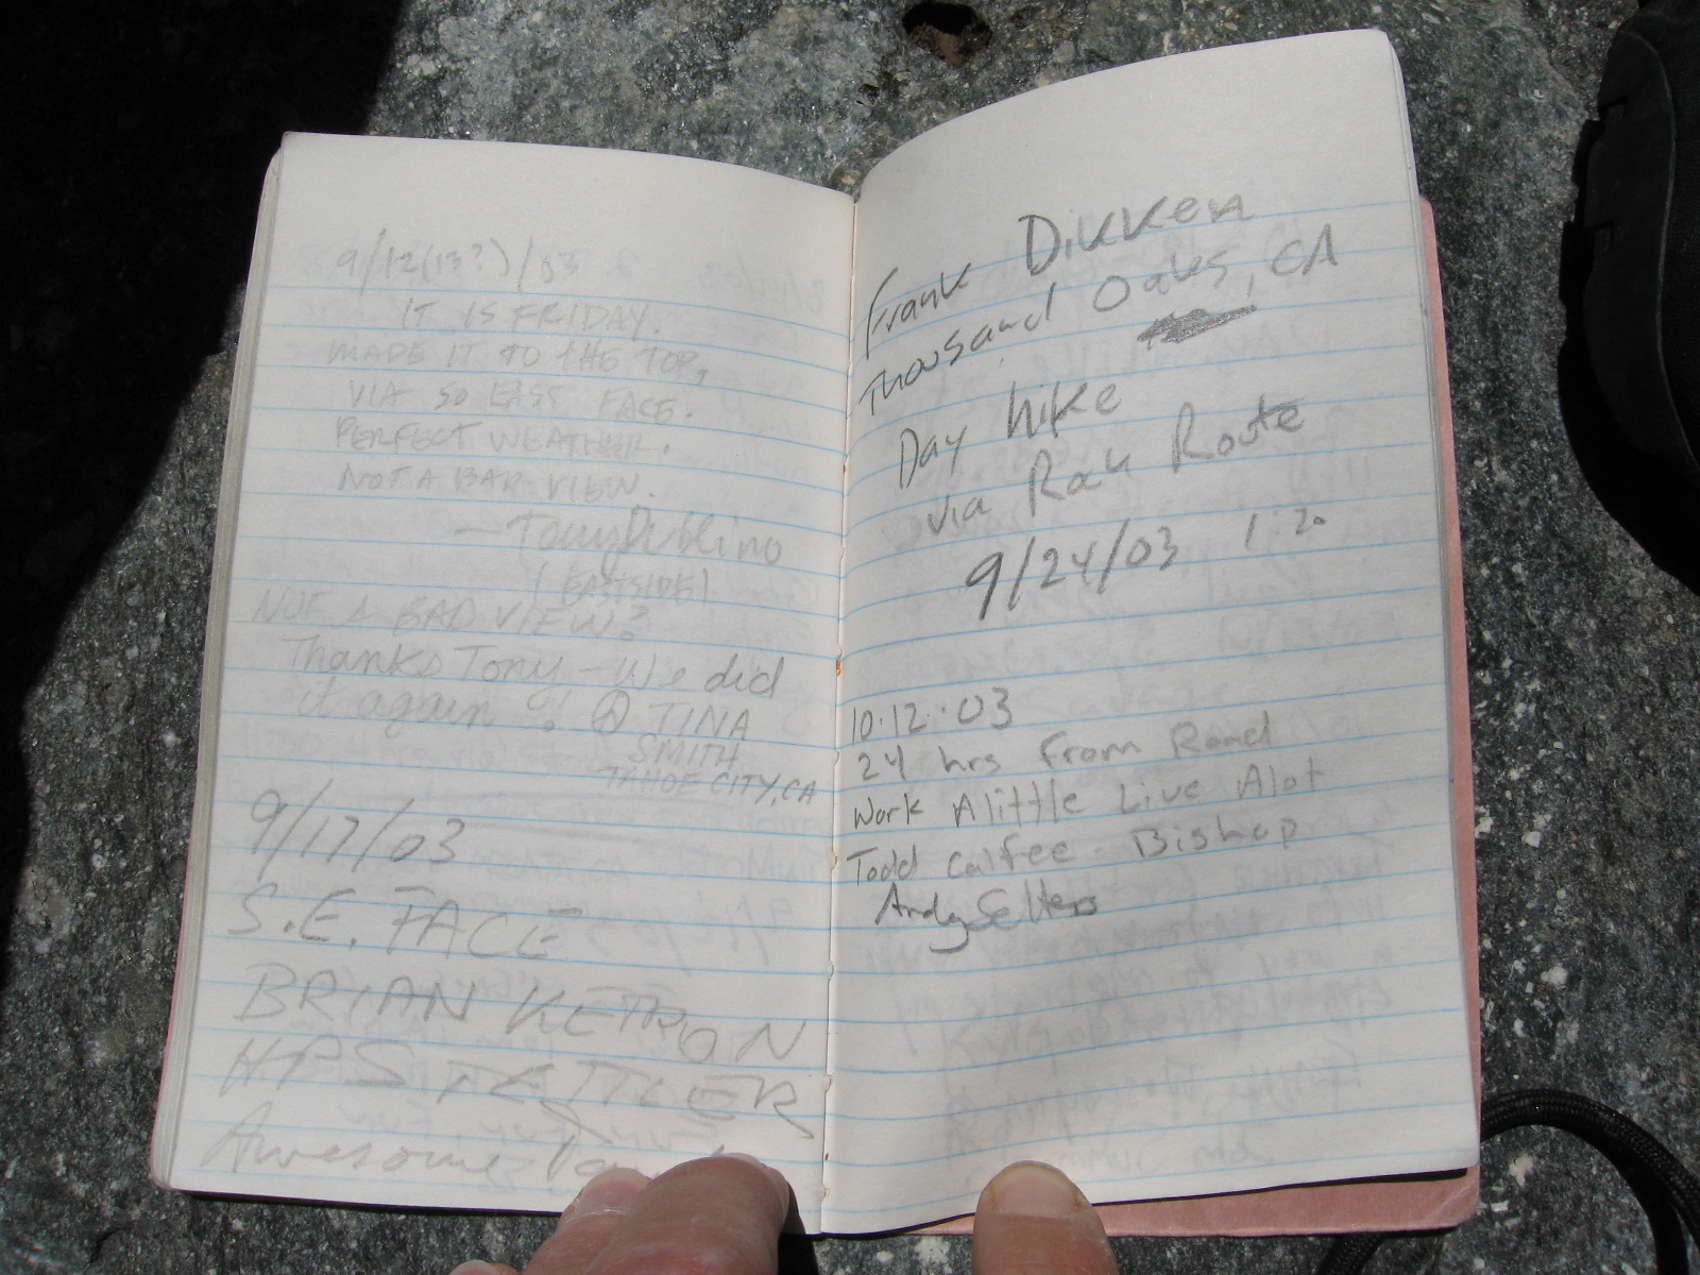 9/12(13?)/03
IT IS FRIDAY.
MADE IT TO THE TOP,
VIA SO EAST FACE.
PERFECT WEATHER.
NOT A BAD VIEW.
— Tony Dublino
(EASTSIDE)
NOT A BAD VIEW?
Thanks Tony - We did
it again! TINA
SMITH
TAHOE CITY, CA
9/17/03
S.E. FACE
BRIAN KETRON
HPS
Awesome
Frank Dikken
Thousand Oaks, CA
Day hike
via Rah Route
9/24/03 1:20
10.12.03
24 hrs From Road
Work A little Live Alot
Todd Calfee - Bishop
Andy Selters